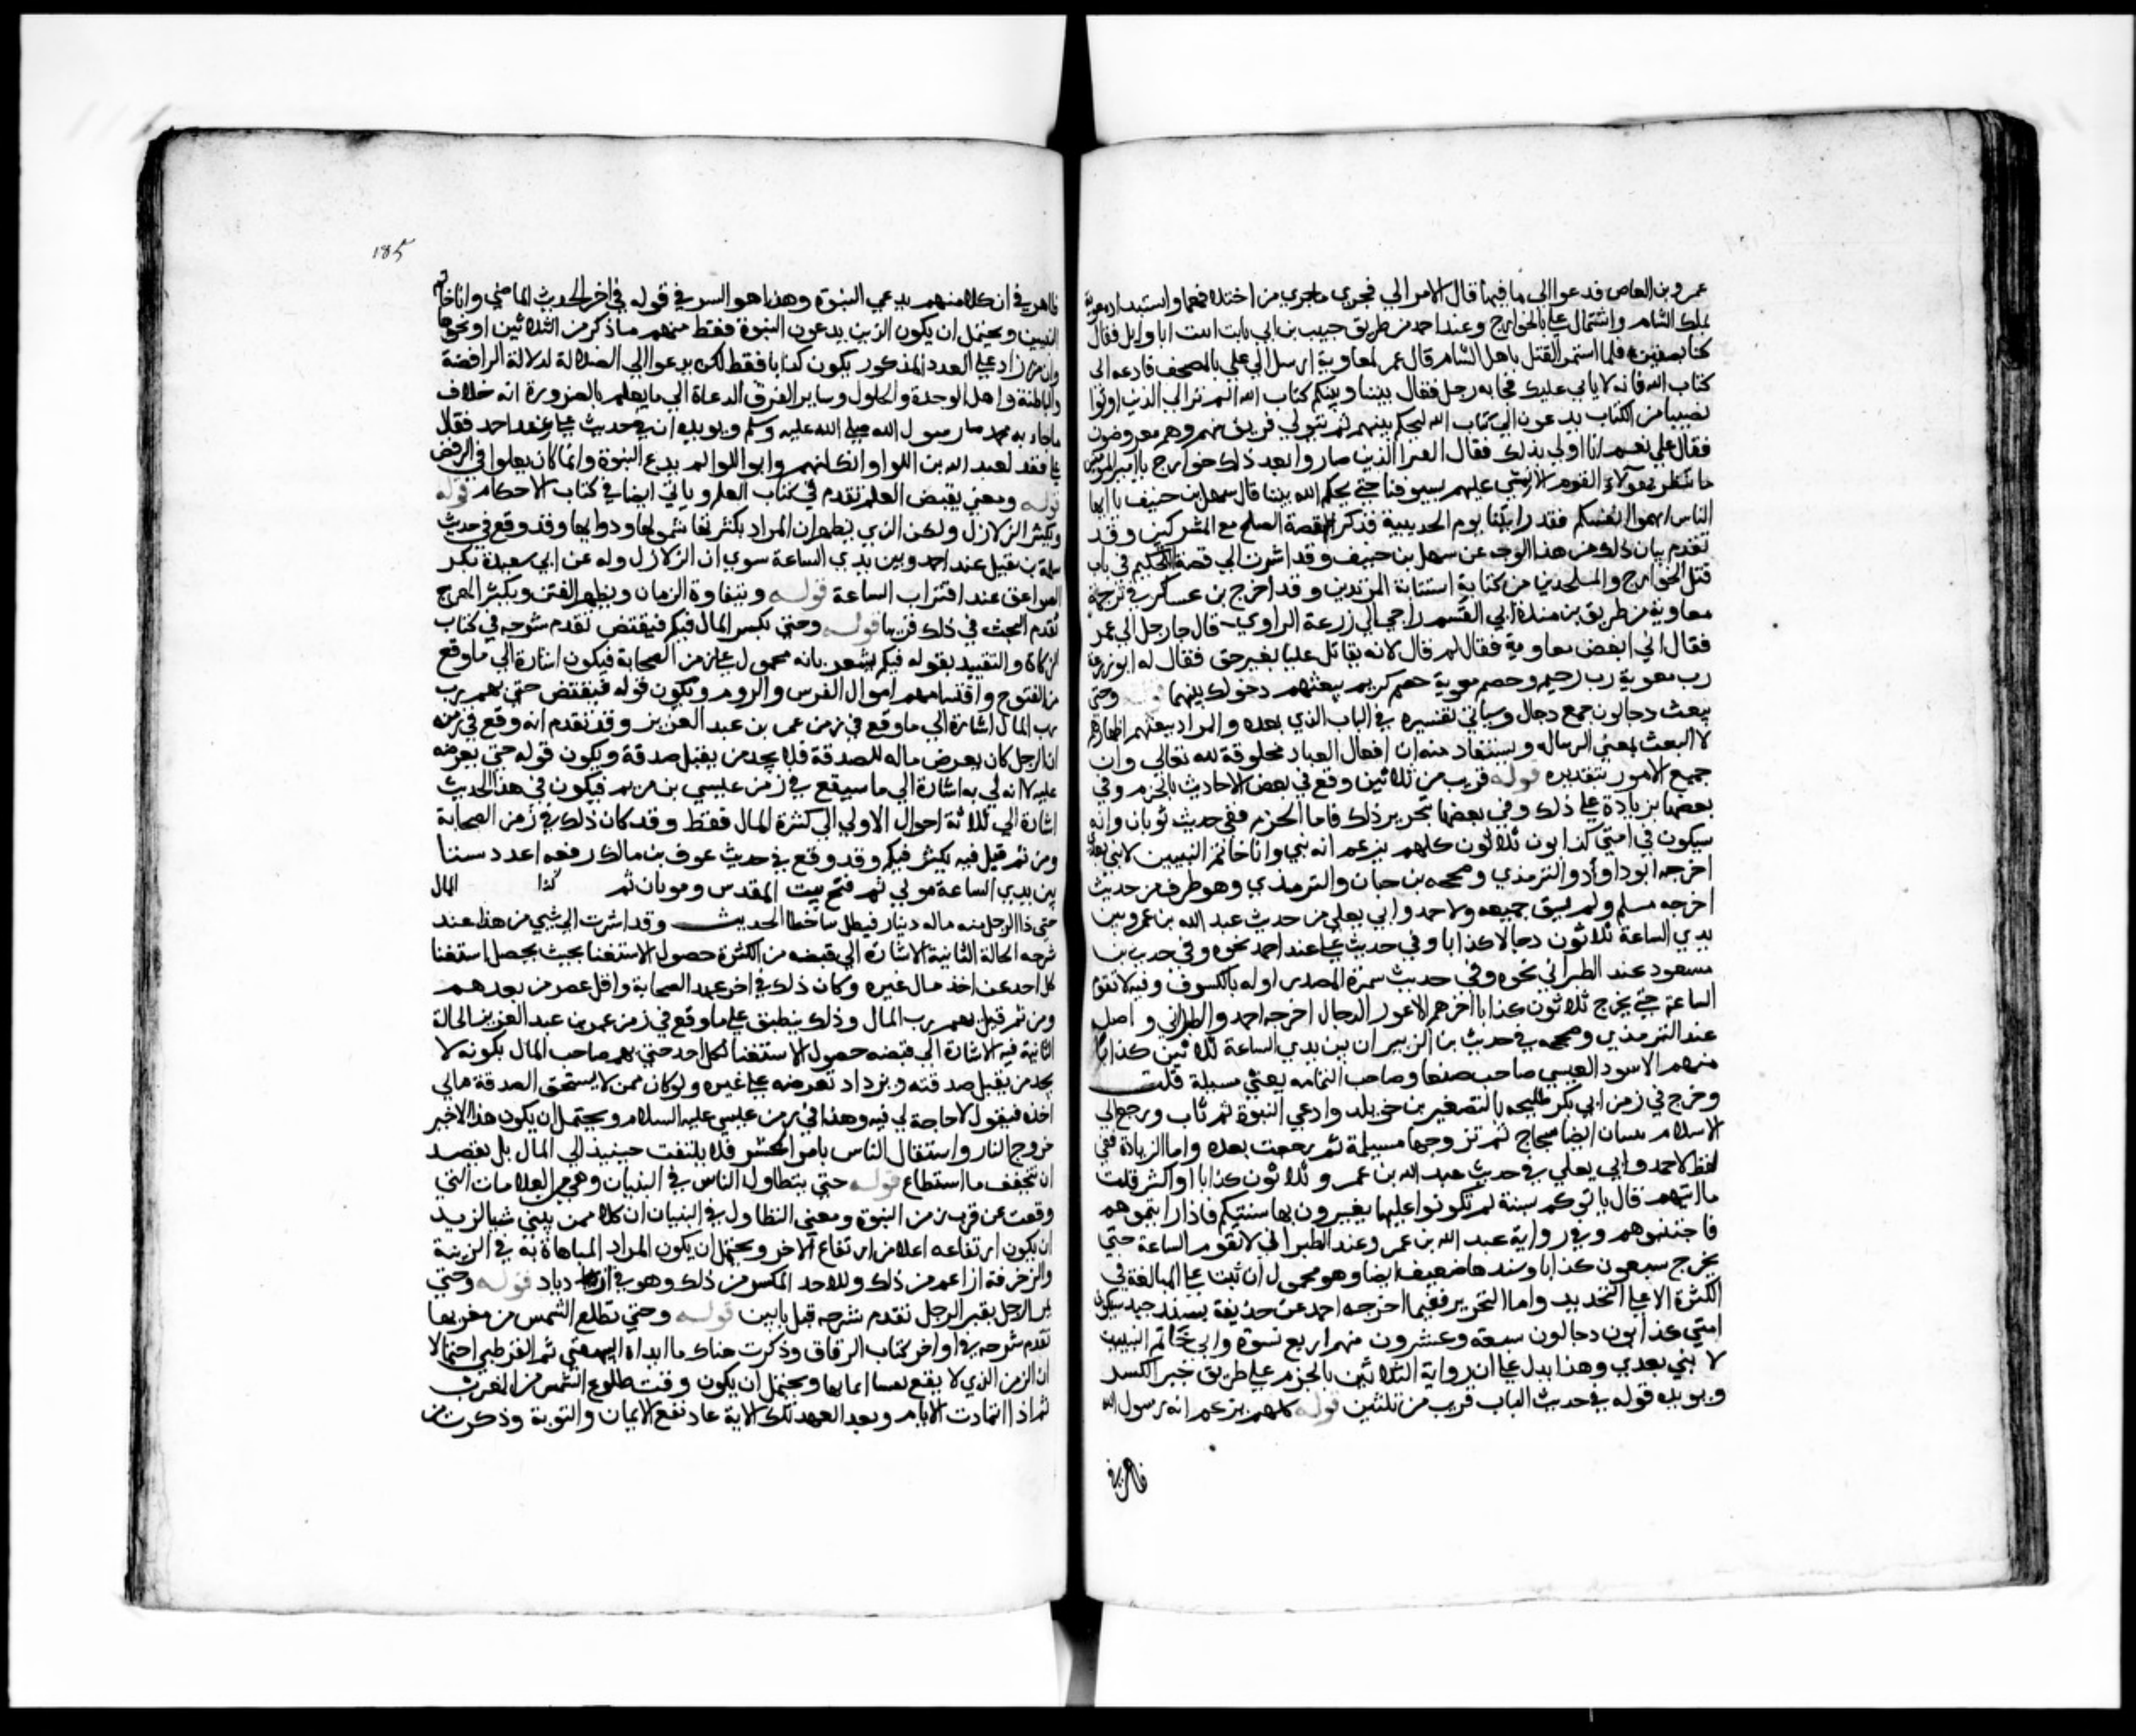 عمرو بن العاص فدعوا الى ما فيها فال الامر الي فجري ماجري من اختلافهما واستبداد معوية
بملك الشام واشتمال علي بالخوارج وعند احمد من طريق حبيب بن ابي ثابت اتيت ابا وايل فقال
كنا بصفين فلما استحر القتل باهل الشام قال عمر لمعاوية ارسل الي علي بالمصحف فادعه الى
كتاب الله فانه لا يابي عليك فجا به رجل فقال بيننا وبينكم كتاب الله الم تر الي الذين اوتوا
نصيبا من الكتاب يدعون الي كتاب الله ليحكم بينهم ثم يتولي فريق منهم وهم معرضون
فقال علي نعم انا اولي بذلك فقال القرا الذين صاروا بعد ذلك خوارج يا امير المومنين
ما ننتظر بهولاء القوم الا نمشي عليهم بسيوفنا حتي يحكم الله بيننا فقال سهل بن حنيف يا ايها
الناس اتهموا انفسكم فقد رايتنا يوم الحديبية فذكر قصة الصلح مع المشركين وقد
تقدم بيان ذلك من هذا الوجه عن سهل بن حنيف وقد اشرت الي قصة التحكيم في باب
قتل الخوارج والملحدين من كتابة استتابة المرتدين وقد اخرج بن عساكر في ترجمة
معاوية من طريق بن مندة ابي القسم راجي ابي زرعة الراوي قال جا رجل الي عمر
فقال اني ابغض معاوية فقال لم قال لانه يقاتل عليا بغير حق فقال له ابو زرعة
رب معوية رب رحيم وخصم معوية خصم كريم دخولك بينهما قوله وحتى
يبعث دجالون جمع دجال وسياتي تفسيره في الباب الذي بعده والمراد ببعثهم اظهارهم
لا البعث بمعني الرساله ويستفاد منه ان افعال العباد مخلوقة لله تعالي وان
جميع الامور بتقديره قوله قريب من ثلاثين وقع في بعض الاحاديث بالجزم وفي
بعضها بزيادة علي ذلك وفي بعضها بتحرير ذلك فاما الجزم ففي حديث ثوبان وانه
سيكون في امتي كذابون ثلاثون كلهم يزعم انه نبي وانا خاتم النبيين لا نبي بعدي
اخرجه ابو داوود والترمذي وصححه بن حبان والترمذي وهو طرف من حديث
اخرجه مسلم ولم يسق جميعه ولاحمد وابي يعلي من حديث عبد الله بن عمرو بين
يدي الساعة ثلاثون دجالا كذابا وفي حديث علي عند احمد نحوه وفي حديث بن
مسعود عند الطبراني نحوه وفي حديث سمرة المصدر اوله بالكسوف وفيه لا تقوم
الساعة حتي يخرج ثلاثون كذابا اخرهم الاعور الدجال اخرجه احمد والطبراني واصله
عند الترمذي وصححه في حديث بن الزبير ان بين يدي الساعة ثلاثين كذابا
منهم الاسود العبسي صاحب صنعا وصاحب اليمامه يعني مسيلة قلت
وخرج في زمن ابي بكر طليحه بالتصغير بن خويلد وادعي النبوة ثم تاب ورجع الي
الاسلام ايضا سجاح ثم تزوجها مسيلمة ثم رجعت بعده واما الزيادة ففي
لفظ لاحمد وابي يعلي في حديث عبد الله بن عمر وثلاثون كذابا او اكثر قلت
ما ايتهم قال ياتوكم بسنة لم تكونوا عليها يغيرون بها سنتكم فاذا رايتموهم
فاجتنبوهم وفي رواية عبد الله بن عمر وعند الطبراني لا تقوم الساعة حتي
يخرج سبعون كذابا وسندها ضعيف ايضا وهو محمول ان ثبت علي المبالغة في
الكثرة لا علي التحديد واما التحرير ففيما اخرجه احمد عن حذيفة بسند جيد سيكون
امتي كذابون دجالون سبعة وعشرون منهم اربع نسوة واني خاتم النبيين
لا نبي بعدي وهذا يدل علي ان رواية الثلاثين بالجزم علي طريق جبر الكسر
ويويده قوله في حديث الباب قريب من ثلثين قوله كلهم يزعم انه رسول الله
ظاهر في
185
ظاهر في ان كلا منهم يدعي النبوة وهذا هو السر في قوله في اخر الحديث الماضي وانا خاتم
النبيين ويحتمل ان يكون الذين يدعون النبوة فقط منهم ما ذكر من الثلاثين او نحوها
وان من زاد علي العدد المذكور يكون كذابا فقط لكن يدعوا الي الضلالة لدلالة الرافضة
والباطنة واهل الوحدة والحلول وساير الفرق الدعاة الي ما يعلم بالضرورة انه خلاف
ما جاء به محمد رسول الله صلي الله عليه وسلم ويويده ان في حديث علي عند احمد فقال
علي فقد لعبد الله بن اللوا وانك لمنهم وابو اللوا لم يدع النبوة وانما كان يغلوا في الرفض
قوله ومعني يقبض العلم تقدم في كتاب العلم وياتي ايضا في كتاب الاحكام قوله
وتكثر الزلازل ولكن الذي يظهر ان المراد بكثرتها شمولها ودوامها وقد وقع في حديث
سلمة بن نفيل عند احمد وبين يدي الساعة سوي ان الزلازل وله عن ابي سعيد تكثر
الصواعق عند اقتراب الساعة قوله ويتقارب الزمان ويظهر الفتن ويكثر الهرج
تقدم البحث في ذلك قريبا قوله وحتي يكثر المال فيكم فيفيض تقدم شرحه في كتاب
الزكاة والتقييد بقوله فيكم يشعر بانه محمول علي زمن الصحابة فيكون اشارة الي ما وقع
من الفتوح واقتسامهم اموال الفرس والروم ويكون قوله فيفيض حتي يهم رب
رب المال اشارة الي ما وقع في زمن عمر بن عبد العزيز وقد تقدم انه وقع في زمنه
ان الرجل كان يعرض ماله للصدقة فلا يجد من يقبل صدقة ويكون قوله حتي يعرضه
عليه لا اله لي به اشارة الي ما سيقع في زمن عيسي بن مريم فيكون في هذا الحديث
اشارة الي ثلاثة احوال الاولي الي كثرة المال فقط وقد كان ذلك في زمن الصحابة
ومن ثم قيل فيه يكثر فيكم وقد وقع في حديث عوف بن مالك رفعه اعدد ستا
بين يدي الساعة موتي ثم فتح بيت المقدس وموتان ثم كذا المال
حتي ذا الرجل منه ماله دينار فيظل ساخطا الحديث وقد اشرت الي شي من هذا عند
شرحه الحالة الثانية الاشارة الي فيضه من الكثرة حصول الاستغنا بحيث يحصل استغنا
كل احد عن اخذ مال غيره وكان ذلك في اخر عهد الصحابة واقل عصر من بعدهم
ومن ثم قيل يهم رب المال وذلك ينطبق علي ما وقع في زمن عمر بن عبد العزيز الحالة
الثانية فيه الاشارة الي فيضه حصول الاستغنا لكل احد حتي يهم صاحب المال بكونه لا
يجد من يقبل صدقته ويزداد تعرضه علي غيره ولو كان ممن لا يستحق الصدقة مالي
اخذه فيقول لا حاجة لي فيه وهذا في زمن عيسي عليه السلام ويحتمل ان يكون هذا الاخير
خروج النار واستقال الناس بامر الحشر فلا يلتفت حينيذ الي المال بل يقصد
ان يتخفف ما استطاع قوله حتي يتطاول الناس في البنيان وهي من العلامات التي
وقعت عن قرب من زمن النبوة ومعني التطاول في البنيان ان كلا ممن يبني شيا يريد
ان يكون ارتفاعه اعلا من ارتفاع الاخر ويحتمل ان يكون المراد المباهاة به في الزينة
والزخرفة او اعم من ذلك وللاحد المكس من ذلك وهو في ازدياد قوله وحتي
يمر الرجل بقبر الرجل تقدم شرحه قبل بابين قوله وحتي تطلع الشمس من مغربها
تقدم شرحه في اواخر كتاب الرقاق وذكرت هناك ما ابداه البيهقي ثم القرطبي احتمالا
ان الزمن الذي لا ينفع نفسا ايمانها ويحتمل ان يكون وقت طلوع الشمس من المغرب
ثم اذا اتمادت الايام وبعد العهد بتلك الاية عاد نفع الايمان والتوبة وذكرت من